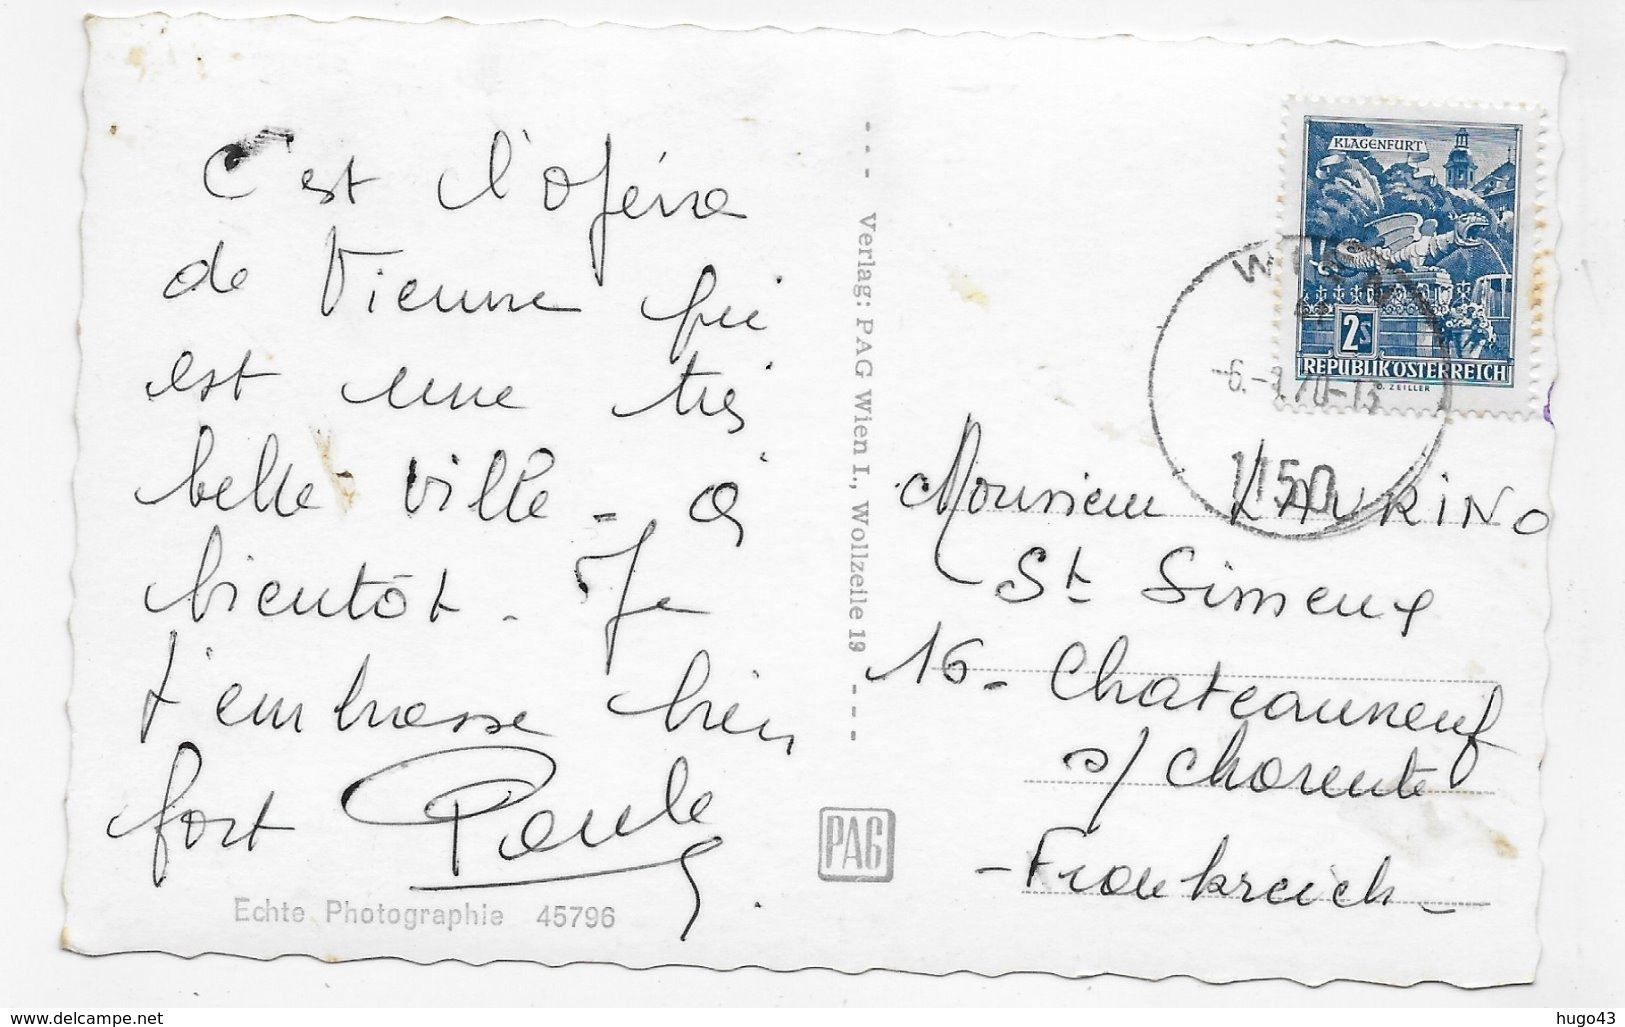 C'est l'Opéra
de Vienne qui
est une très
belle ville - à
bientôt. Je
t'embrasse bien
fort Paule
Echte Photographie 45796
Verlag: PAG Wien I., Wollzeile 19
PAG
KLAGENFURT
2s
REPUBLIK ÖSTERREICH
O. ZEILLER
WIEN
1150
Monsieur
St Simeux
16 - Chateauneuf
s/ Charente
- Frankreich -
www.delcampe.net
hugo43